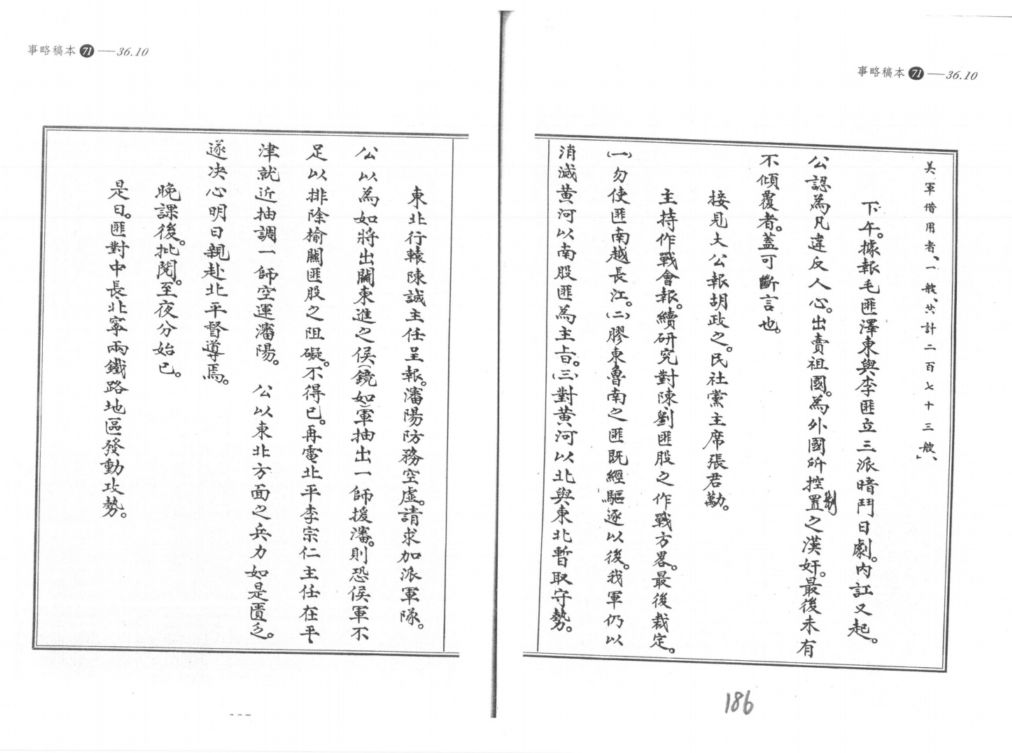 事略稿本71──36.10
美軍借用者、一艘、共計二百七十三艘、」
下午。據報毛匪澤東與李匪立三派暗鬥日劇。內訌又起。
公認為凡違反人心。出賣祖國。為外國所控制置之漢奸。最後未有
不傾覆者。蓋可斷言也。
接見大公報胡政之。民社黨主席張君勱。
主持作戰會報。續研究對陳劉匪股之作戰方畧。最後裁定。
㈠勿使匪南越長江。㈡膠東魯南之匪既經驅逐以後。我軍仍以
消滅黃河以南股匪為主旨。㈢對黃河以北與東北暫取守勢。
186
事略稿本71──36.10
東北行轅陳誠主任呈報。瀋陽防務空虛。請求加派軍隊。
公以為如將出關東進之侯(鏡如)軍抽出一師援瀋。則恐侯軍不
足以排除榆關匪股之阻礙。不得已。再電北平李宗仁主任在平
津就近抽調一師空運瀋陽。　公以東北方面之兵力如是匱乏。
遂决心明日親赴北平督導焉。
晚課後。批閱。至夜分始已。
是日。匪對中長北寧兩鐵路地區發動攻勢。
---